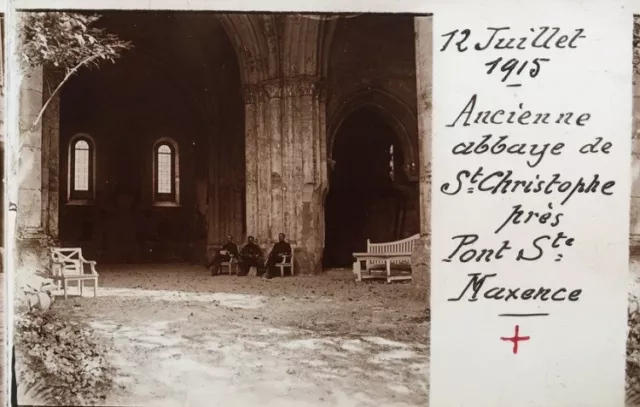 12 Juillet
1915
Ancienne
abbaye de
St. Christophe
près
Pont Ste.
Maxence